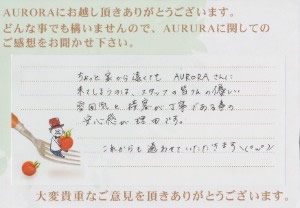 AURORAにお越し頂きありがとうございます。
どんな事でも構いませんので、AURURAに関しての
ご感想をお聞かせ下さい。
ちょっと家から遠くても AURORAさんに
来てしまうのは、スタッフの皆さんの優しい
雰囲気と 接客が丁寧である事の
安心感が理由です。
これからも 通わせていただきます\(^o^)/
大変貴重なご意見を頂きありがとうございます。